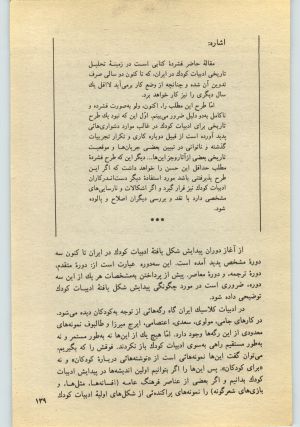 اشاره:
مقالهٔ حاضر فشردهٔ کتابی است در زمینهٔ تحلیل
تاریخی ادبیات کودک در ایران، که تا کنون دو سالی صرف
تدوین آن شده و چنانچه از وضع کار برمی‌آید لااقل یک
سال دیگری را نیز کار خواهد برد.
اما طرح این مطلب را، اکنون، ولو به‌صورت فشرده و
ناکامل به‌دو دلیل ضرور می‌بینم. اول این که نبود یک طرح
تاریخی برای ادبیات کودک در غالب موارد دشواری‌هائی
پدید آورده است از قبیل دوباره کاری و تکرار تجربیات
گذشته و ناتوانی در تبیین بعضی جریان‌ها و موقعیت
تاریخی بعضی از آثار و جز این‌ها... دیگر این که طرح فشردهٔ
مطلب حداقل این حسن را خواهد داشت که اگر این
طرح پذیرفتنی باشد مورد استفادهٔ دیگر دست‌اندرکاران
ادبیات کودک نیز قرار گیرد و اگر اشکالات و نارسایی‌های
مشخصی دارد با نقد و بررسی دیگران اصلاح و پالوده
شود.
***
از آغاز دوران پیدایش شکل یافتهٔ ادبیات کودک در ایران تا کنون سه
دورهٔ مشخص پدید آمده است. این سه‌دوره عبارت است از: دورهٔ متقدم،
دورهٔ ترجمه، و دورهٔ معاصر. پیش از پرداختن به‌مشخصات هر یک از این سه
دوره، ضروری است در مورد چگونگی پیدایش شکل یافتهٔ ادبیات کودک
توضیحی داده شود.
در ادبیات کلاسیک ایران گاه رگه‌هائی از توجه به‌کودکان دیده می‌شود.
در کارهای جامی، مولوی، سعدی، اعتصامی، ایرج میرزا و طالبوف نمونه‌های
معدودی از این رگه‌ها وجود دارد. اما هیچ یک از این‌ها نه به‌طور مستمر و نه
به‌طور مستقیم راهی به‌سوی ادبیات کودک باز نکردند. فوقش را که بگیریم،
می‌توان گفت این‌ها نمونه‌هائی است از «نوشته‌هائی دربارهٔ کودکان» و نه
«برای کودکان». پس این‌ها را اگر بتوانیم اولین اندیشه‌ها در پیدایش ادبیات
کودک بدانیم و اگر بعضی از عناصر فرهنگ عامه (افسانه‌ها، مثل‌ها، و
بازی‌های شعرگونه) را نمونه‌های پراکنده‌ئی از شکل‌های اولیهٔ ادبیات کودک
۱۳۹